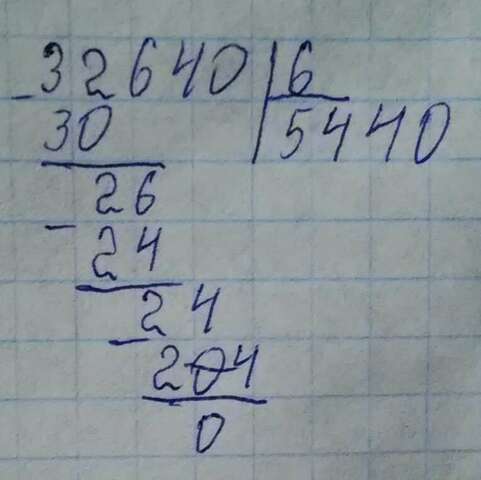 -32640|6
30 |5440
26
-
24
24
-
204
0